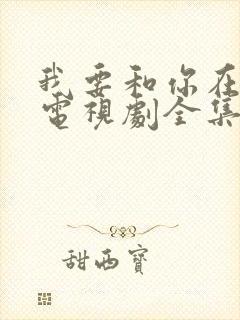 我要和你在
電視劇全集
甜西寶